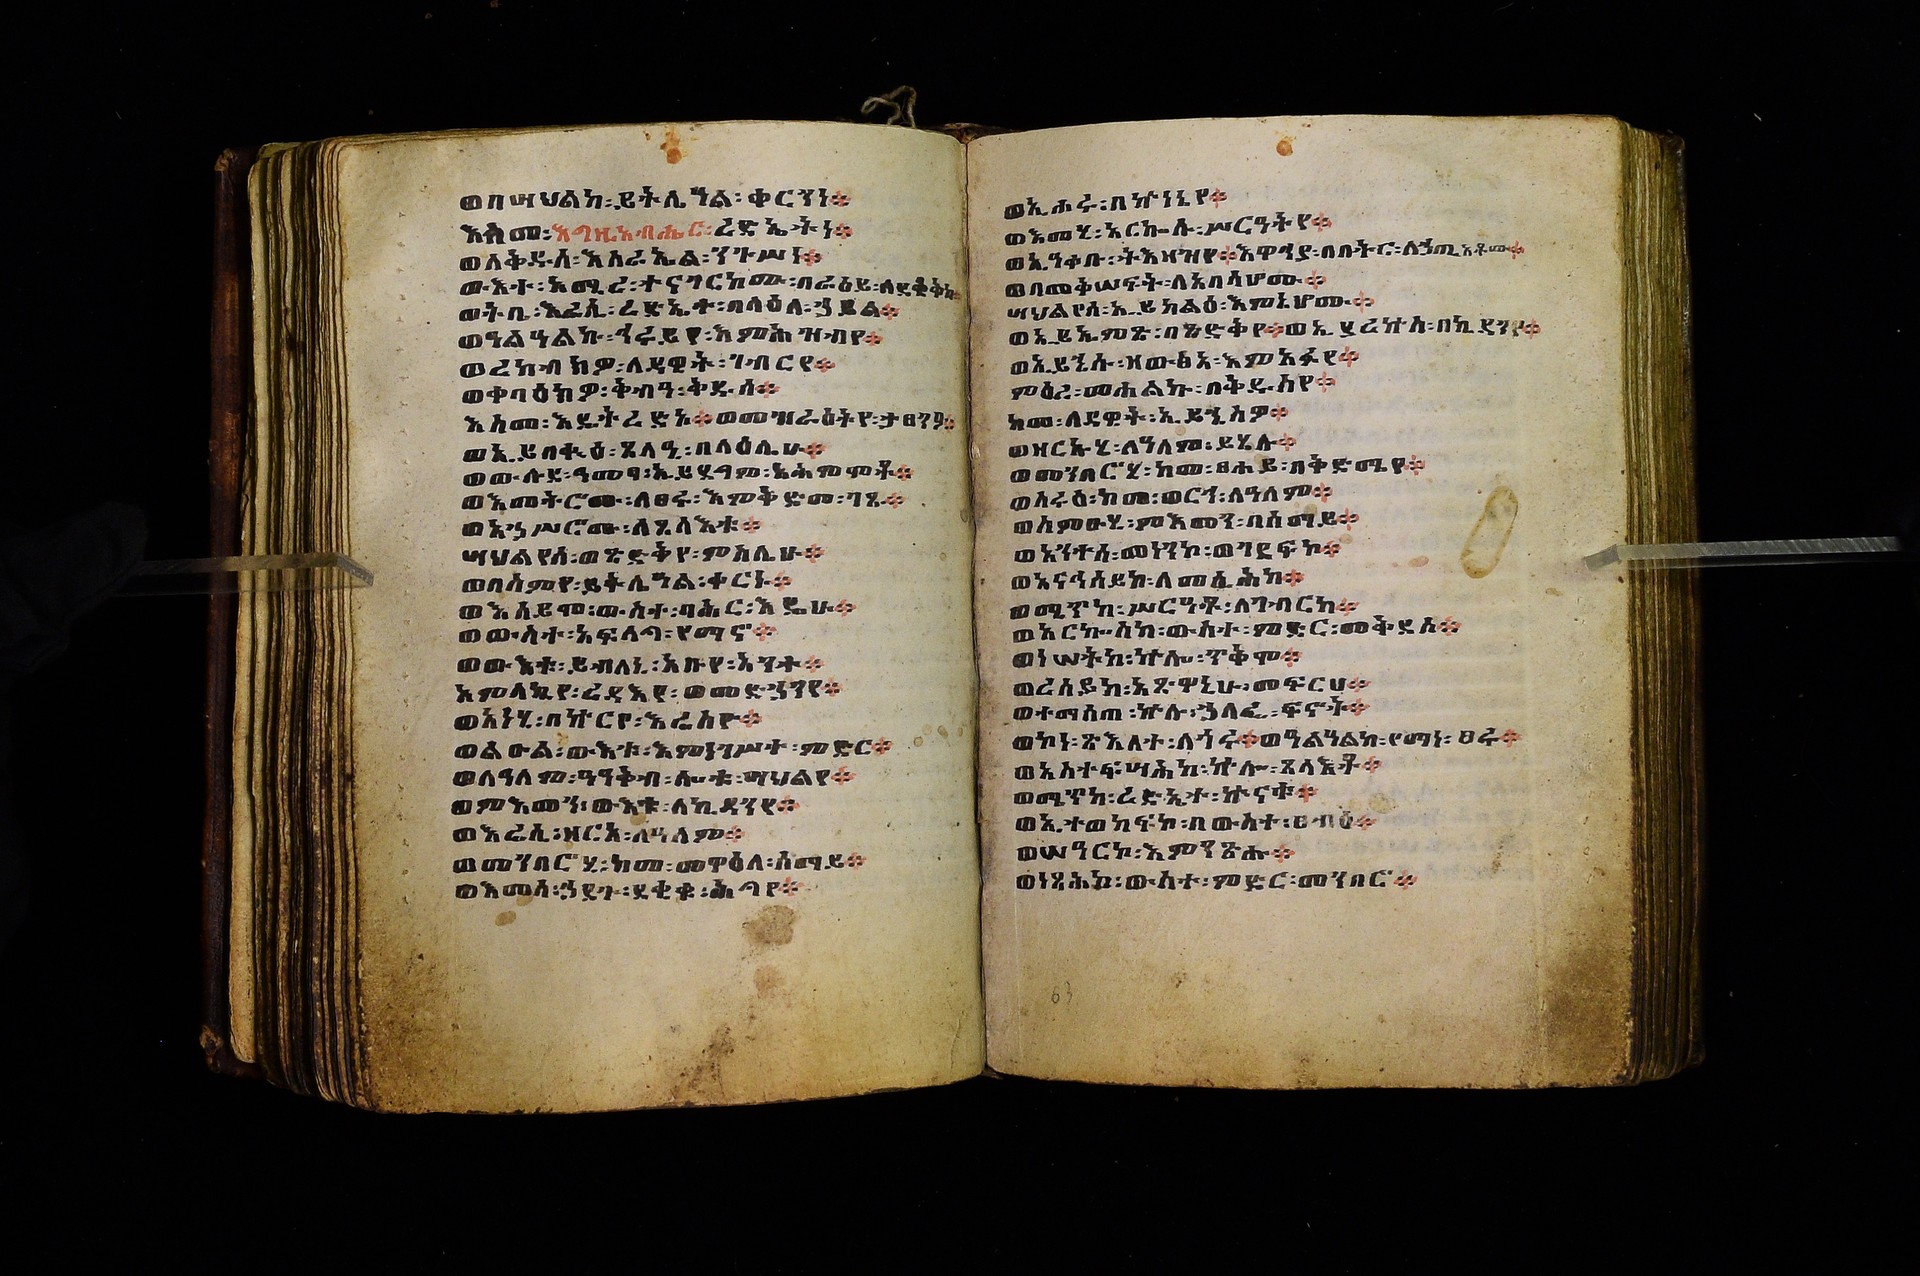 ወበሣህልከ፡ይትሌዓል፡ቀርንነ፨
እስመ፡እግዚአብሔር፡ረድኤትነ፨
ወለቅዱሰ፡እስራኤል፡ንጉሥነ፨
ውእተ፡አሚረ፡ተናገርከሙ፡በራዕይ፡ለደቂቅከ
ወትቤ፡እሬሲ፡ረድኤተ፡በላዕለ፡ኃይል፨
ወዓልዓልኩ፡ኅሩይየ፡እምሕዝብየ፨
ወረከብክዎ፡ለዳዊት፡ገብርየ፨
ወቀባዕክዎ፡ቅብዓ፡ቅዱሰ፨
እስመ፡እዴትረድኦ፨ወመዝራዕትየ፡ታፀንዖ፨
ወኢይበቍዕ፡ጸላዒ፡በላዕሌሁ፨
ወውሉደ፡ዓመፃ፡ኢይደግም፡አሕምሞቶ፨
ወእመትሮሙ፡ለፀሩ፡እምቅድመ፡ገጹ፨
ወአኃሥሮሙ፡ለጸላእቱ፨
ሣህልየሰ፡ወጽድቅየ፡ምስሌሁ፨
ወበስምየ፡ይትሌዓል፡ቀርኑ፨
ወእሰይሞ፡ውስተ፡ባሕር፡እዴሁ፨
ወውስተ፡አፍላግ፡የማኖ፨
ወውእቱ፡ይብለኒ፡አቡየ፡አንተ፨
አምላኪየ፡ረዳእየ፡ወመድኃንየ፨
ወአነሂ፡በኵርየ፡እሬስዮ፨
ወልዑል፡ውእቱ፡እምነገሥተ፡ምድር፨
ወለዓለም፡ዓዓቅብ፡ሎቱ፡ሣህልየ፨
ወምእመን፡ውእቱ፡ለኪዳንየ፨
ወእሬሲ፡ዘርኦ፡ለዓለም፨
ወመንበሮሂ፡ከመ፡መዋዕለ፡ሰማይ፨
ወእመሰ፡ኃደጉ፡ደቂቁ፡ሕግየ፨
ወኢሐሩ፡በኵነኔየ፨
ወእመሂ፡አርኩሱ፡ሥርዓትየ፨
ወኢዓቀቡ፡ትእዛዝየ፨እዋኅያ፡በበትር፡ለኃጢአቶሙ፨
ወበመቅሠፍት፡ለአበሳሆሙ፨
ሣህልየሰ፡ኢይክልዕ፡እምኔሆሙ፨
ወኢይኤምጽ፡በጽድቅየ፨ወኢያረኵስ፡በኪዳንየ፨
ወኢይኄሱ፡ዘውፅአ፡እምአፉየ፨
ምዕረ፡መሐልኩ፡በቅዱስየ፨
ከመ፡ለዳዊት፡ኢይኄስዎ፨
ወዘርኡሂ፡ለዓለም፡ይሄሉ፨
ወመንበሮሂ፡ከመ፡ፀሐይ፡በቅድሜየ፨
ወሥሩዕ፡ከመ፡ወርኅ፡ለዓለም፨
ወስምዑሂ፡ምእመን፡በሰማይ፨
ወአንተሰ፡መነንኮ፡ወገደፍኮ፨
ወአናኅስይኮ፡ለመሲሕከ፨
ወሚጥከ፡ሥርዓቶ፡ለገብርከ፨
ወአርኰስከ፡ውስተ፡ምድር፡መቅደሰ፨
ወነሠትከ፡ኵሎ፡ጥቅሞ፨
ወረሰይከ፡አጽዋኒሁ፡መፍርሀ፨
ወተማሰጠ፡ኵሉ፡ኃላፌ፡ፍኖት፨
ወኮነ፡ጽእለተ፡ለጎሩ፨ወዓልዓልከ፡የማነ፡ፀሩ፨
ወአስተፍሣሕከ፡ኵሎ፡ጸላእቶ፨
ወሚጥከ፡ረድኤተ፡ኵናቱ፨
ወኢተወከፍኮ፡በውስተ፡ፀብዕ፨
ወሠዓርኮ፡እምንጽሑ፨
ወነፃሕከ፡ውስተ፡ምድር፡መንበሮ፨
63